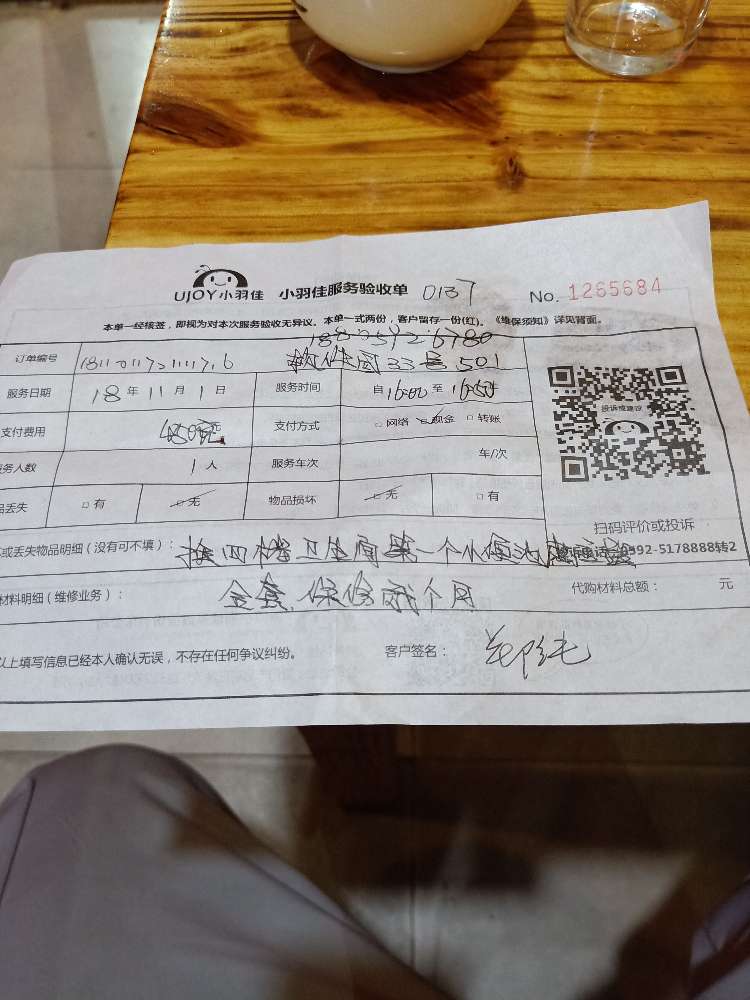 UJOY小羽佳 小羽佳服务验收单 0137 No. 1265684
本单一经核签，即视为对本次服务验收无异议。本单一式两份，客户留存一份(红)。《维保须知》详见背面。
订单编号 软件园33号501
服务日期 18年11月1日 服务时间 自16:00至
支付费用 450元 支付方式 □网络 □现金 □转账
投诉或建议
服务人数 1人 服务车次 年/次
丢失 □有 □无 物品损坏 □无 □有
扫码评价或投诉
或丢失物品明细（没有可不填）： 换四楼卫生间第一个小便池 0592-5178888转2
材料明细（维修业务）： 全套.保修 个月 代购材料总额： 元
以上填写信息已经本人确认无误，不存在任何争议纠纷。 客户签名：